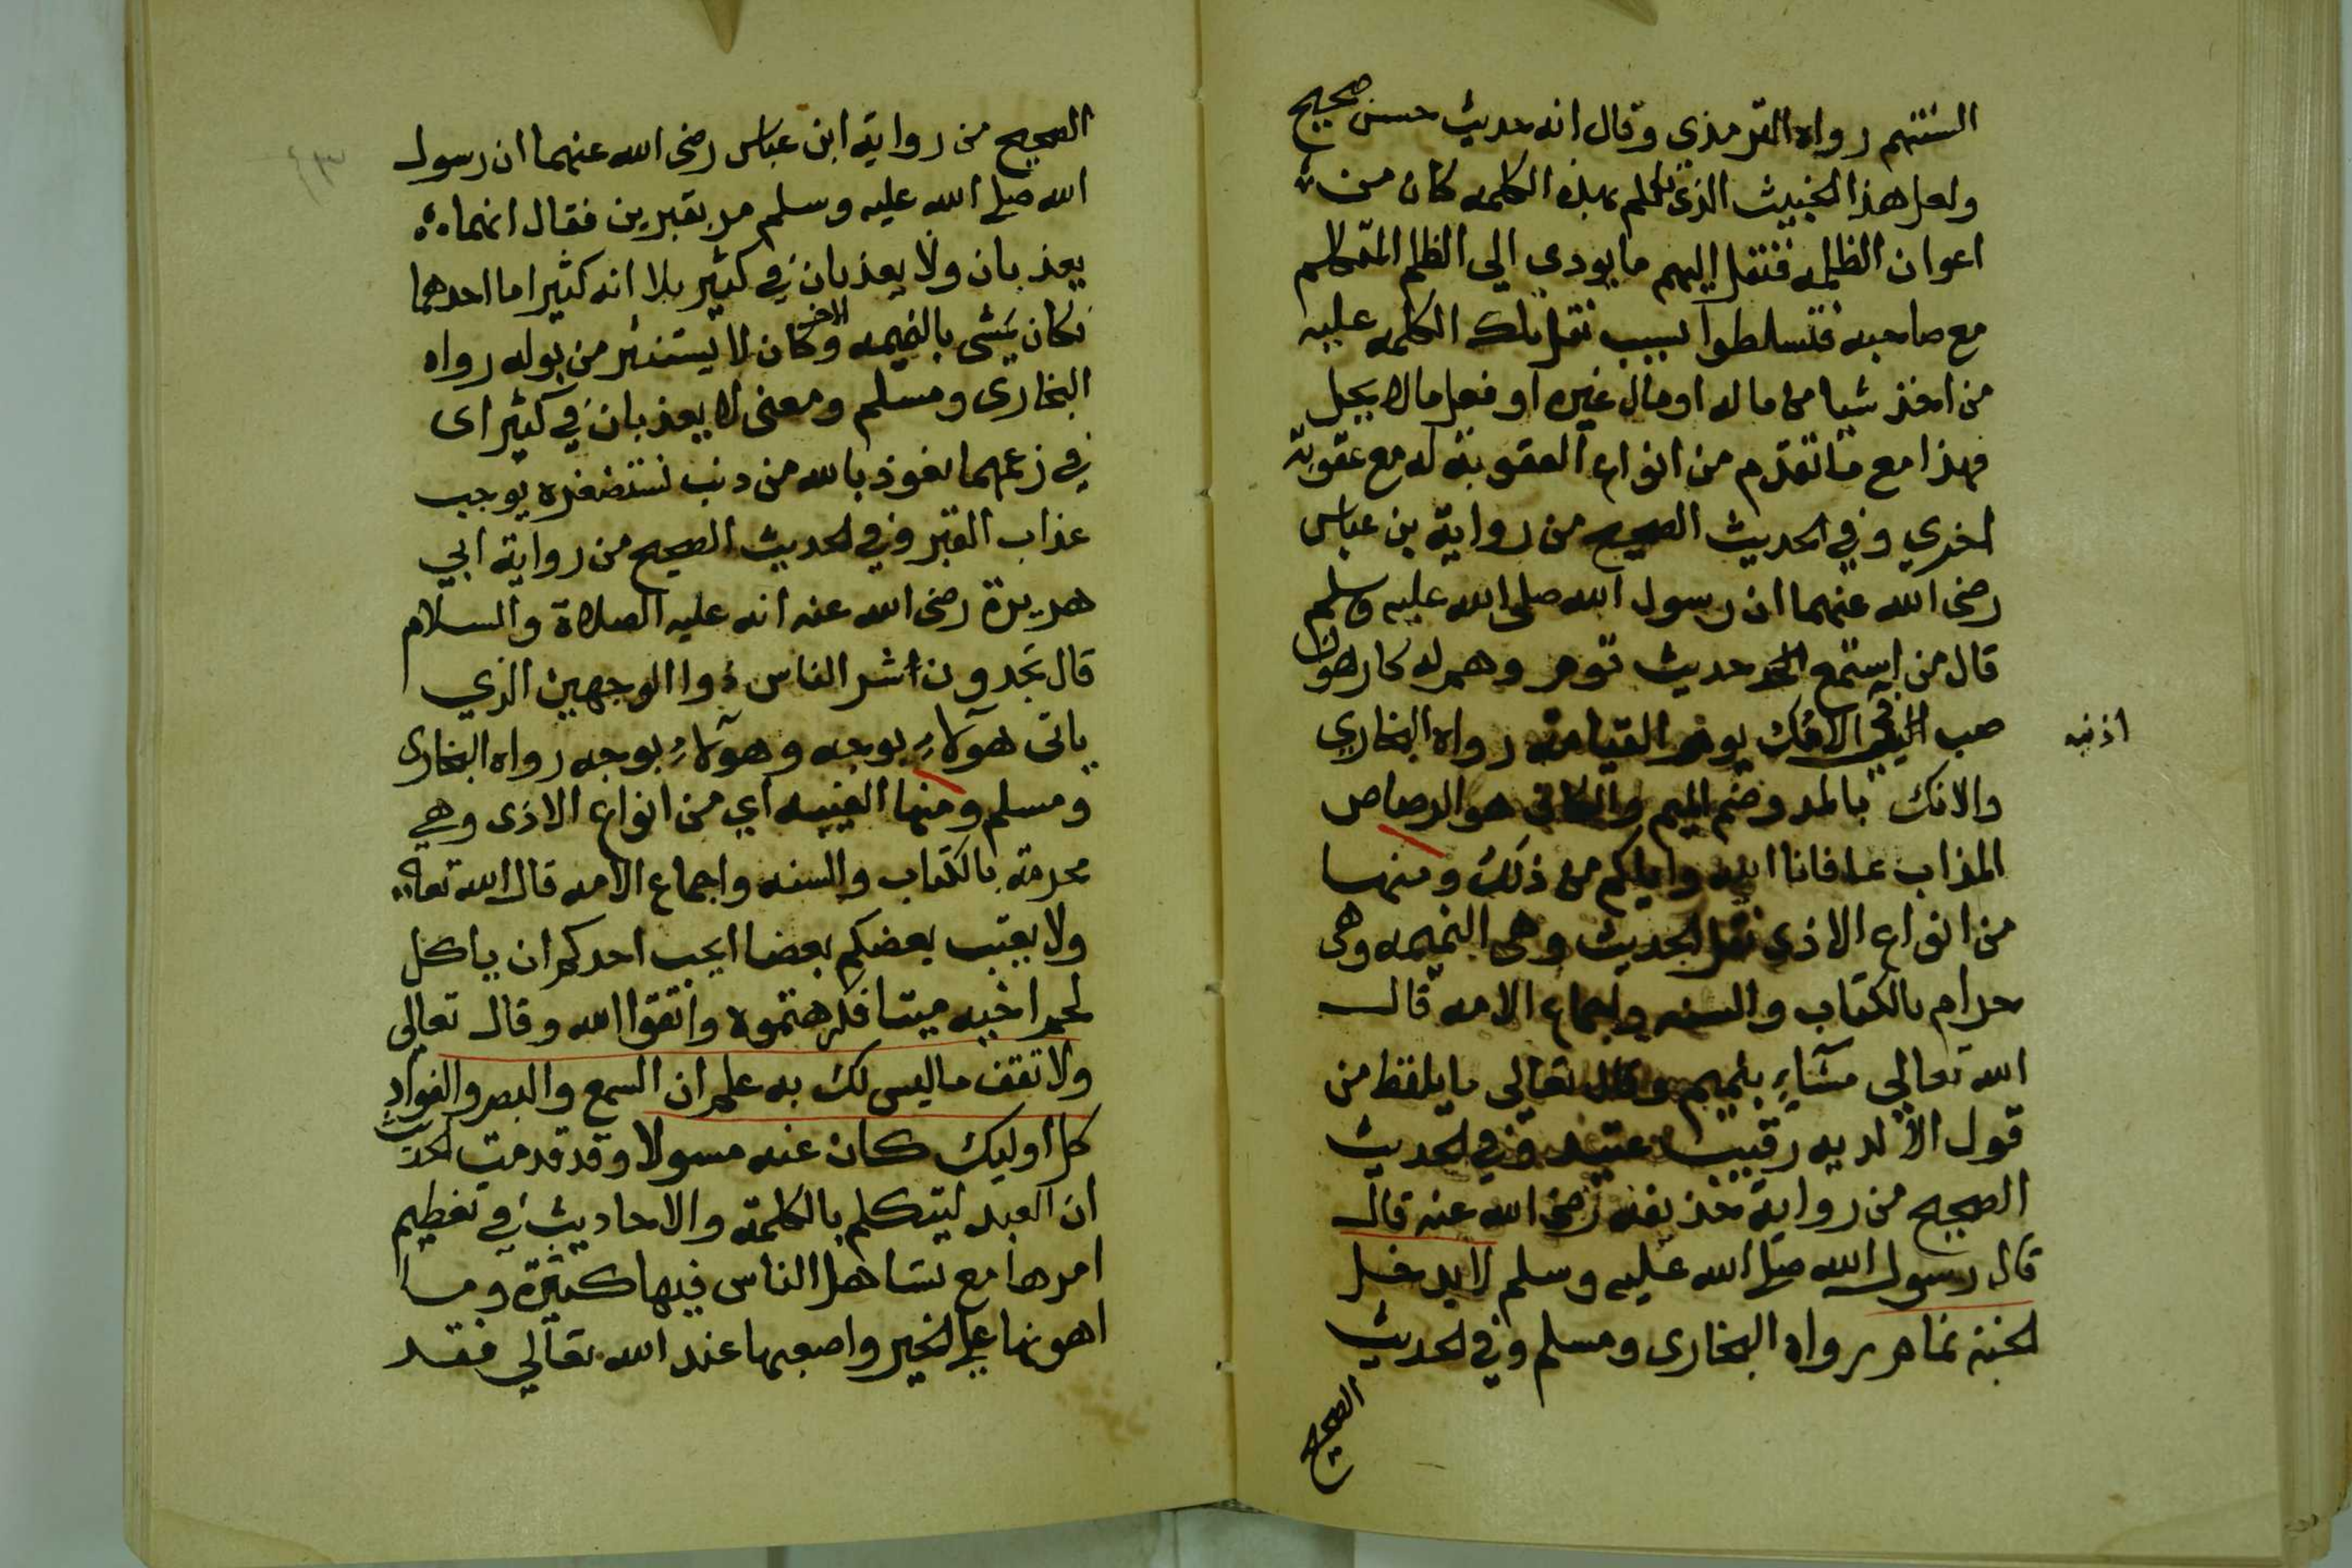 السنتهم رواه الترمذى وقال انه حديث حسن صحيح
ولعل هذا الخبيث الذى تكلم بهذه الكلمه كان من
اعوان الظلمه فنقل اليهم ما يودي الي الظلم المتكلم
مع صاحبه فتسلطوا بسبب نقل تلك الكلمه عليه
من اخذ شيا من ماله او مال غيره او فعل ما لا يحل
فهذا مع ما تقدم من انواع العقوبة له مع عقوبة
اخري وفي الحديث الصحيح من رواية بن عباس
رضى الله عنهما ان رسول الله صلى الله عليه وسلم
قال من استمع الى حديث قوم وهم له كارهون
صب في اذنيه الانك يوم القيامة رواه البخاري
والانك بالمد وضم الميم والكاف هو الرصاص
المذاب عافانا الله واياكم من ذلك ومنها
من انواع الاذى نقل الحديث وهى النميمه وهى
حرام بالكتاب والسنه واجماع الامه قال
الله تعالي مشآءٍ بنميم وقال تعالى ما يلفظ من
قول الا لديه رقيب عتيد وفي الحديث
الصحيح من رواية حذيفه رضى الله عنه قال
قال رسول الله صلى الله عليه وسلم لا يدخل
الجنة نمام رواه البخارى ومسلم وفي الحديث
الصحيح
الصحيح من رواية ابن عباس رضى الله عنهما ان رسول
الله صلى الله عليه وسلم مر بقبرين فقال انهما
يعذبان ولا يعذبان في كثير بلا انه كثير اما احدهما
فكان يمشى بالنميمه والاخر كان لا يستنثر من بوله رواه
البخارى ومسلم ومعنى لا يعذبان في كثير اى
في زعمهما نعوذ بالله من ذنب نستصغره يوجب
عذاب القبر وفي الحديث الصحيح من رواية ابي
هريرة رضى الله عنه انه عليه الصلاة والسلام
قال تجدون اشر الناس ذوا الوجهين الذي
ياتى هوآلاءِ بوجه وهوآلاءِ بوجه رواه البخارى
ومسلم ومنها الغيبه اي من انواع الاذى وهي
محرمة بالكتاب والسنه واجماع الامه قال الله تعا
ولا يغتب بعضكم بعضا ايحب احدكم ان ياكل
لحم اخيه ميتا فكرهتموه واتقوا الله وقال تعالى
ولا تقف ما ليس لك به علم ان السمع والبصر والفواد
كل اوليك كان عنه مسولا وقد قدمت الحديث
ان العبد ليتكلم بالكلمة والاحاديث في تعظيم
امرها مع تساهل الناس فيها كثيرة وما
اهونها على الخير واصعبها عند الله تعالي فقد